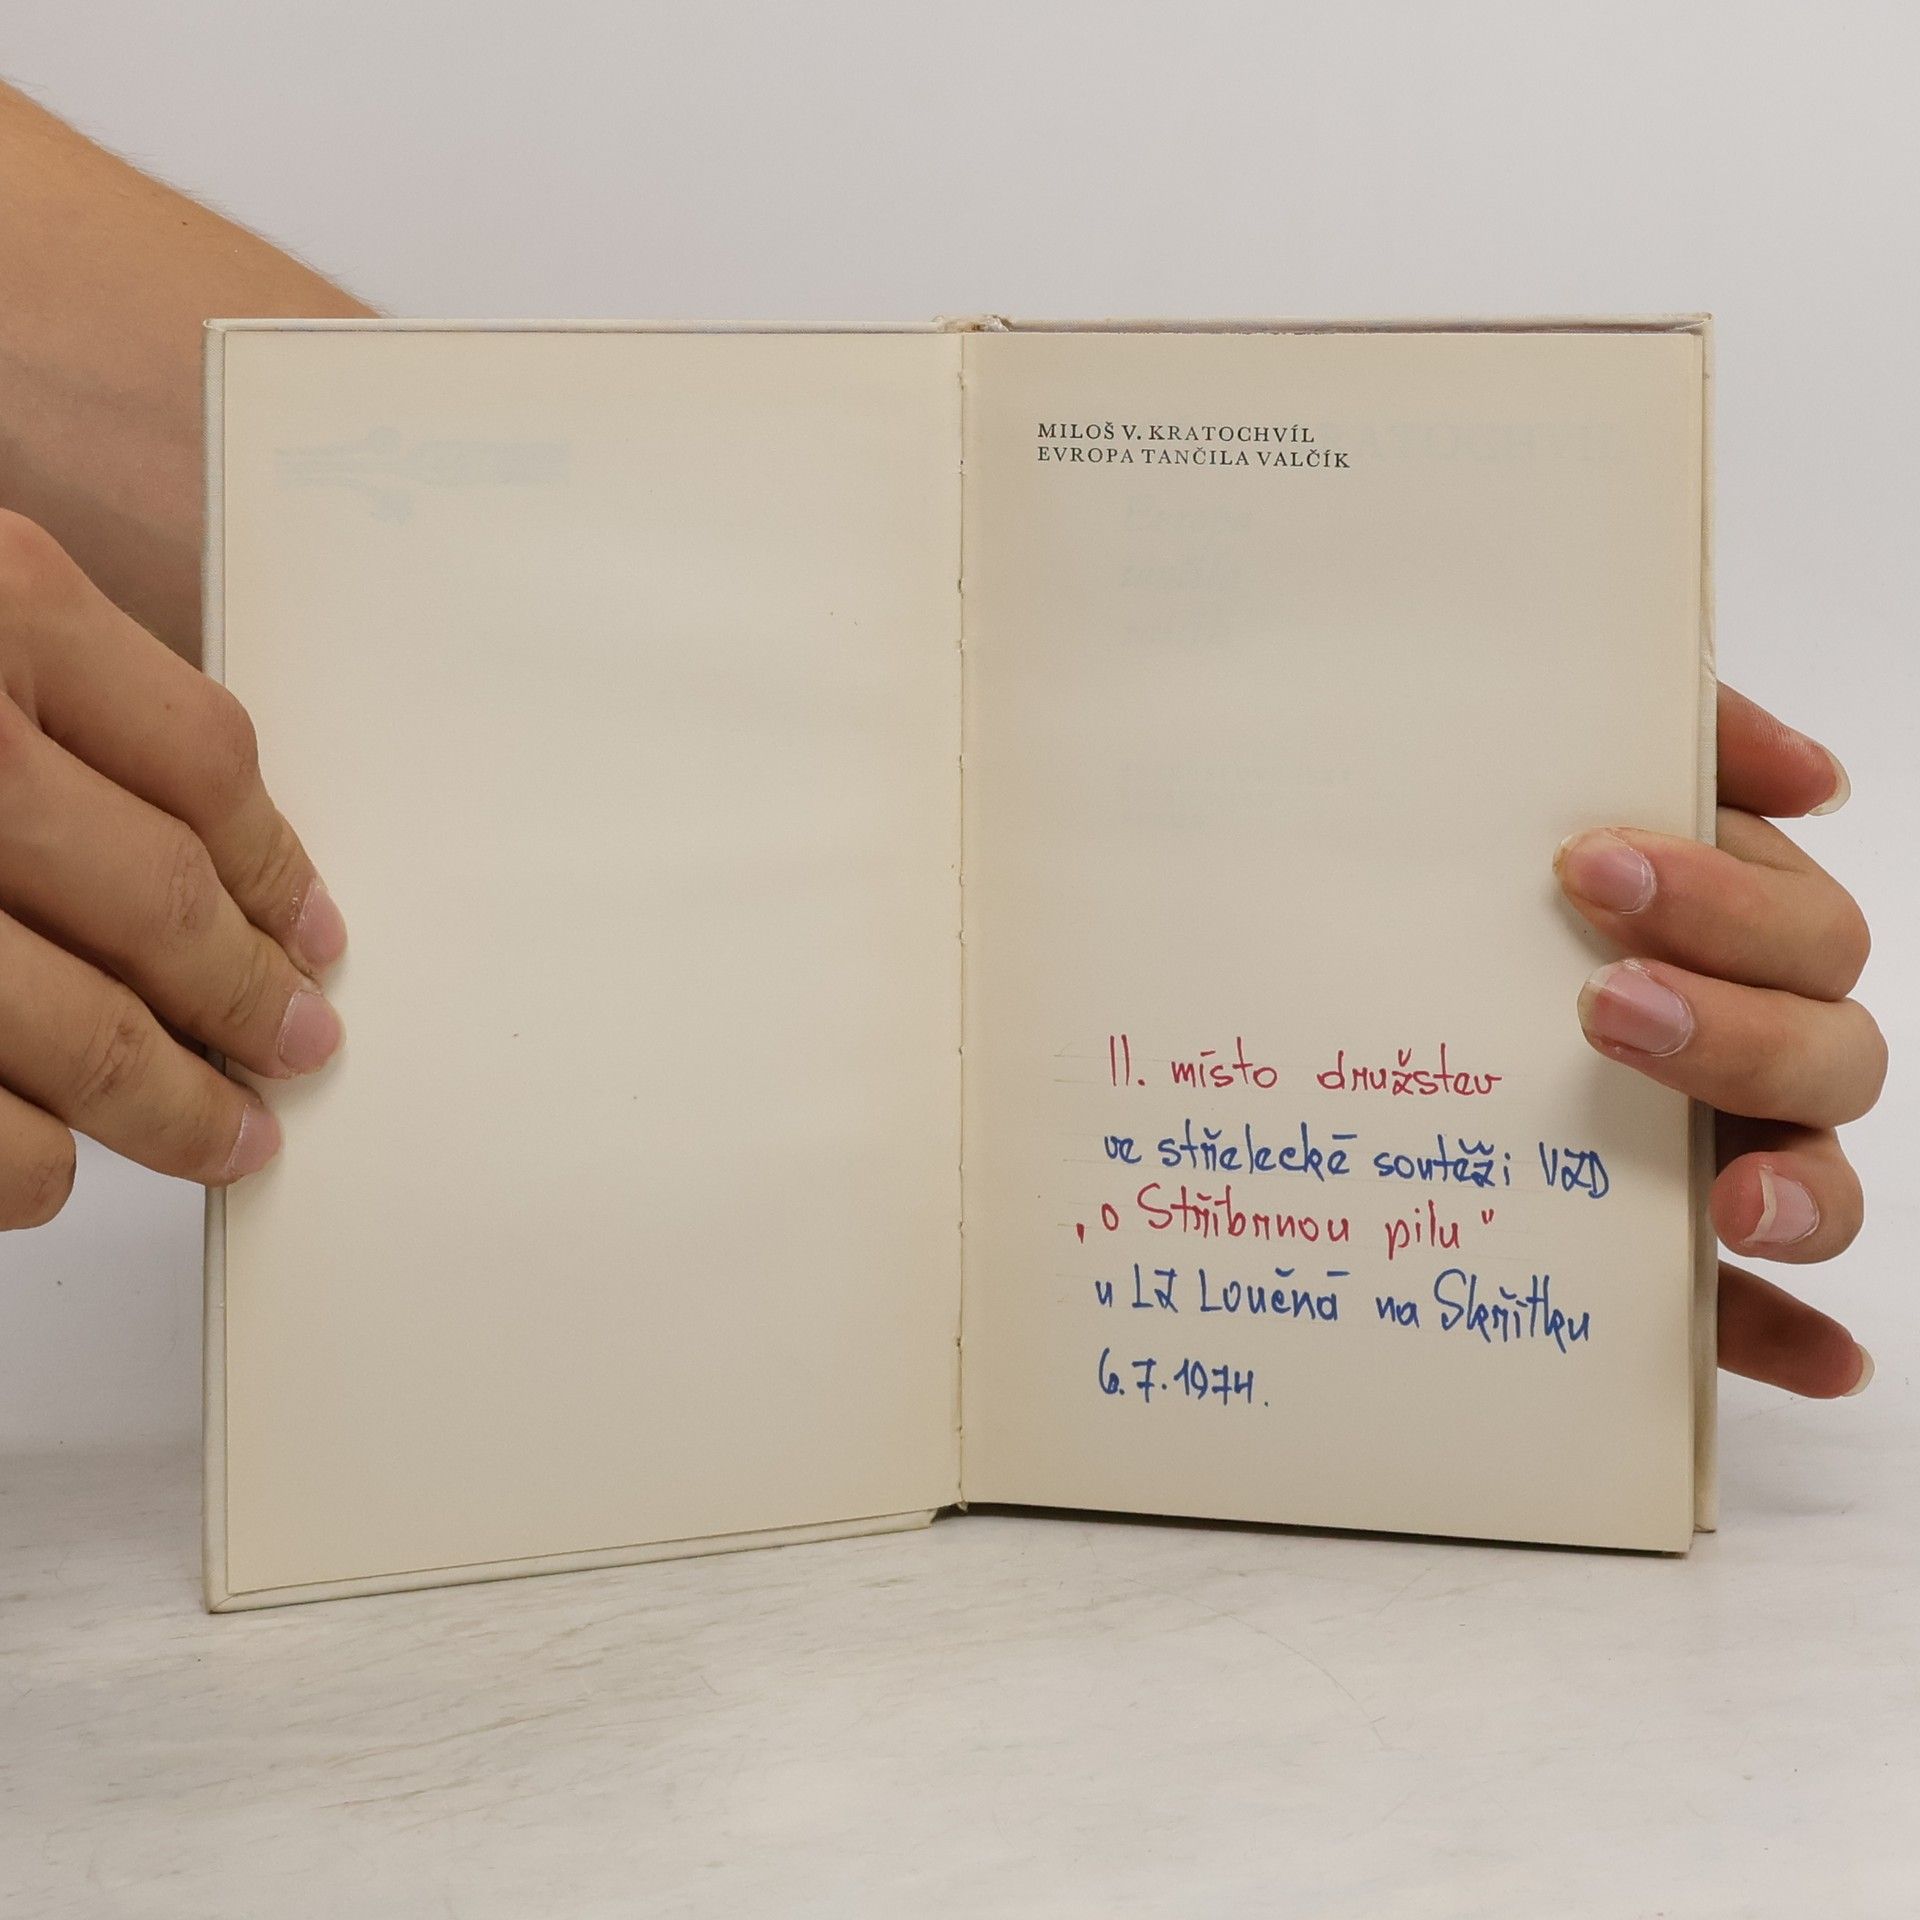 MILOŠ V. KRATOCHVÍL
EVROPA TANČILA VALČÍK
II. místo družstev
ve střelecké soutěži VLD
„o Stříbrnou pilu"
u LZ Loučná na Skřítku
6.7.1974.